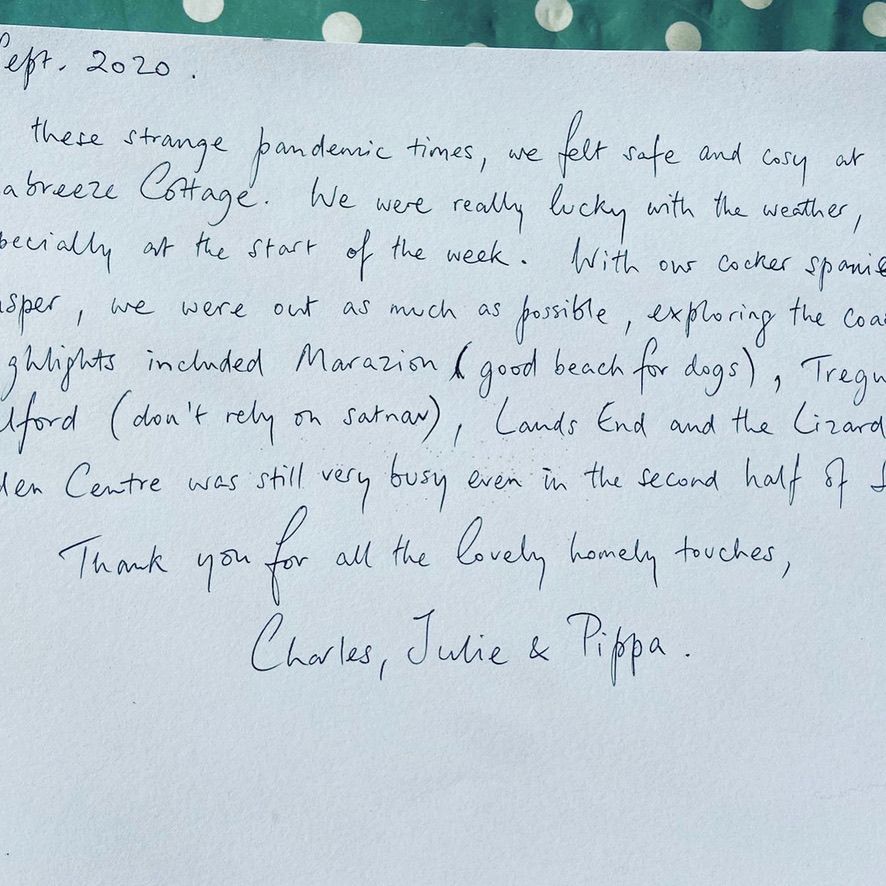 Sept. 2020.
these strange pandemic times, we felt safe and cosy at
abreeze Cottage. We were really lucky with the weather,
pecially at the start of the week. With our cocker spanie
sper, we were out as much as possible, exploring the coa
ghlights included Marazion (good beach for dogs), Tregu
lford (don't rely on satnav), Lands End and the Lizard
den Centre was still very busy even in the second half of S
Thank you for all the lovely homely touches,
Charles, Julie & Pippa.